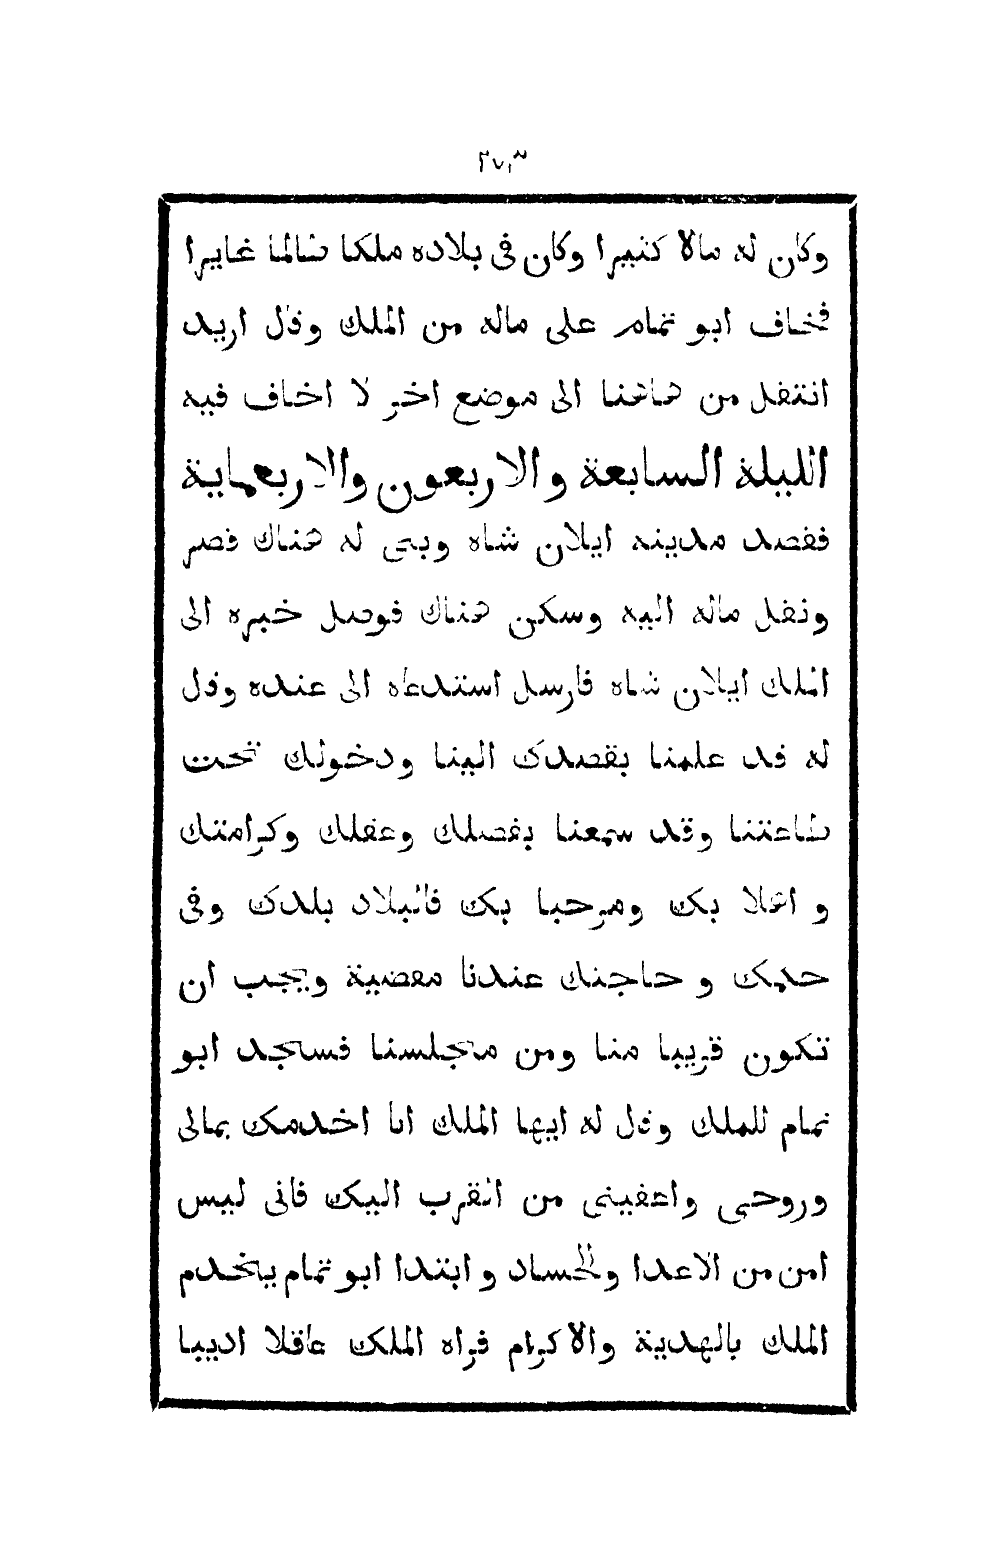 ٢٧٣
وكان له مالا كثيرا وكان فى بلاده ملكا ظالما غايرا
فخاف ابو تمام على ماله من الملك وقال اريد
انتقل من هاهنا الى موضع اخر لا اخاف فيه
الليلة السابعة والاربعون والاربعماية
فقصد مدينه ايلان شاه وبنى له هناك قصر
ونقل ماله اليه وسكن هناك فوصل خبره الى
الملك ايلان شاه فارسل استدعاه الى عنده وقال
له قد علمنا بقصدك الينا ودخولك تحت
طاعتنا وقد سمعنا بفضلك وعقلك وكرامتك
و اهلا بك ومرحبا بك فالبلاد بلدك وفى
حكمك و حاجتك عندنا مقضية ويجب ان
تكون قريبا منا ومن مجلسنا فسجد ابو
تمام للملك وقال له ايها الملك انا اخدمك بمالى
وروحى واعفينى من التقرب اليك فانى ليس
امن من الاعدا والحساد و ابتدا ابو تمام يخدم
الملك بالهدية والاكرام فراه الملك عاقلا اديبا